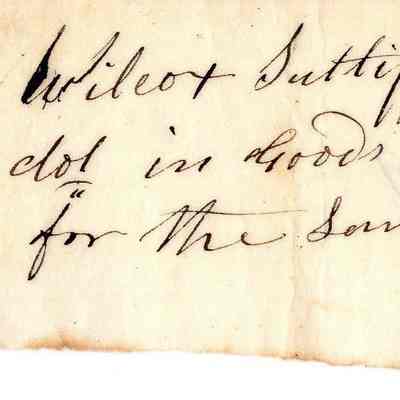 Wilcox Suttif
dol in Goods
for the Sam